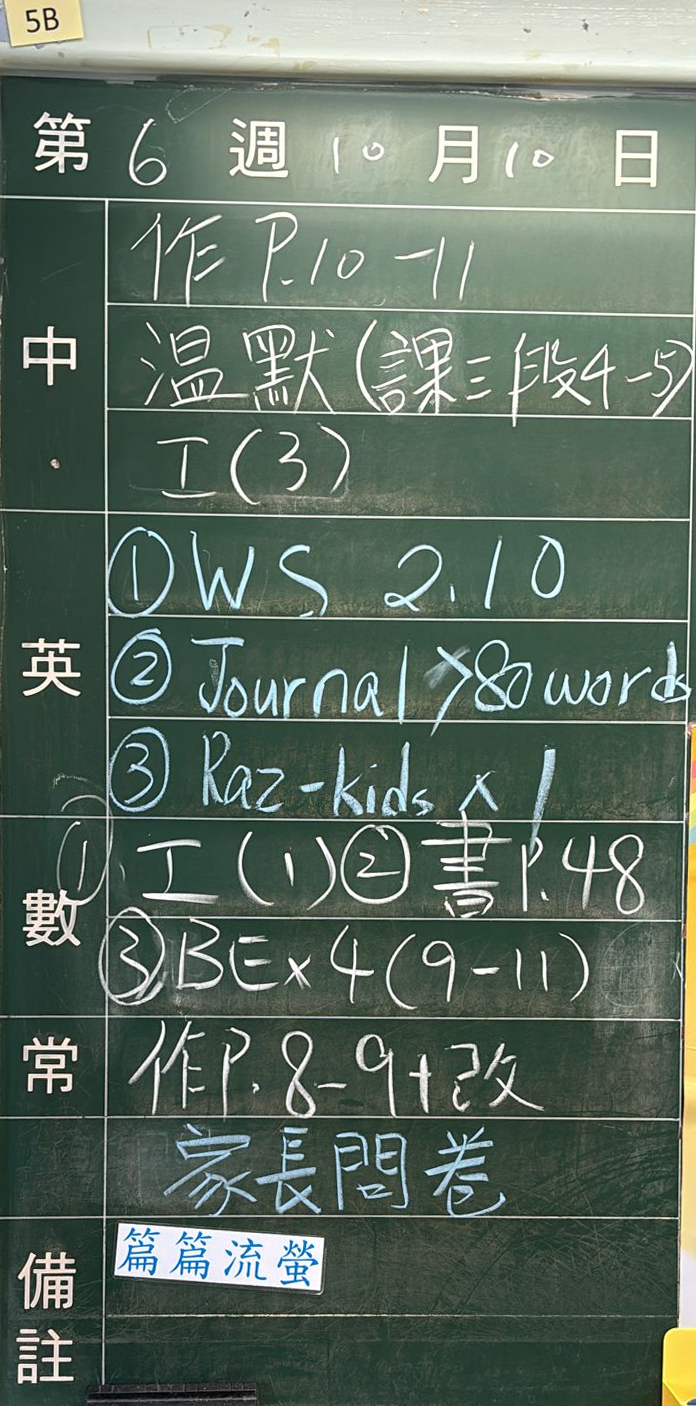 5B
第 6 週 10 月 10 日
中
作 P.10-11
温默(課三段4-5)
工(3)
英
①WS 2.10
②Journal >80words
③Raz-kids x 1
數
①工(1)②書P.48
③BEx4(9-11)
常
作P.8-9+改
家長問卷
備註
篇篇流螢